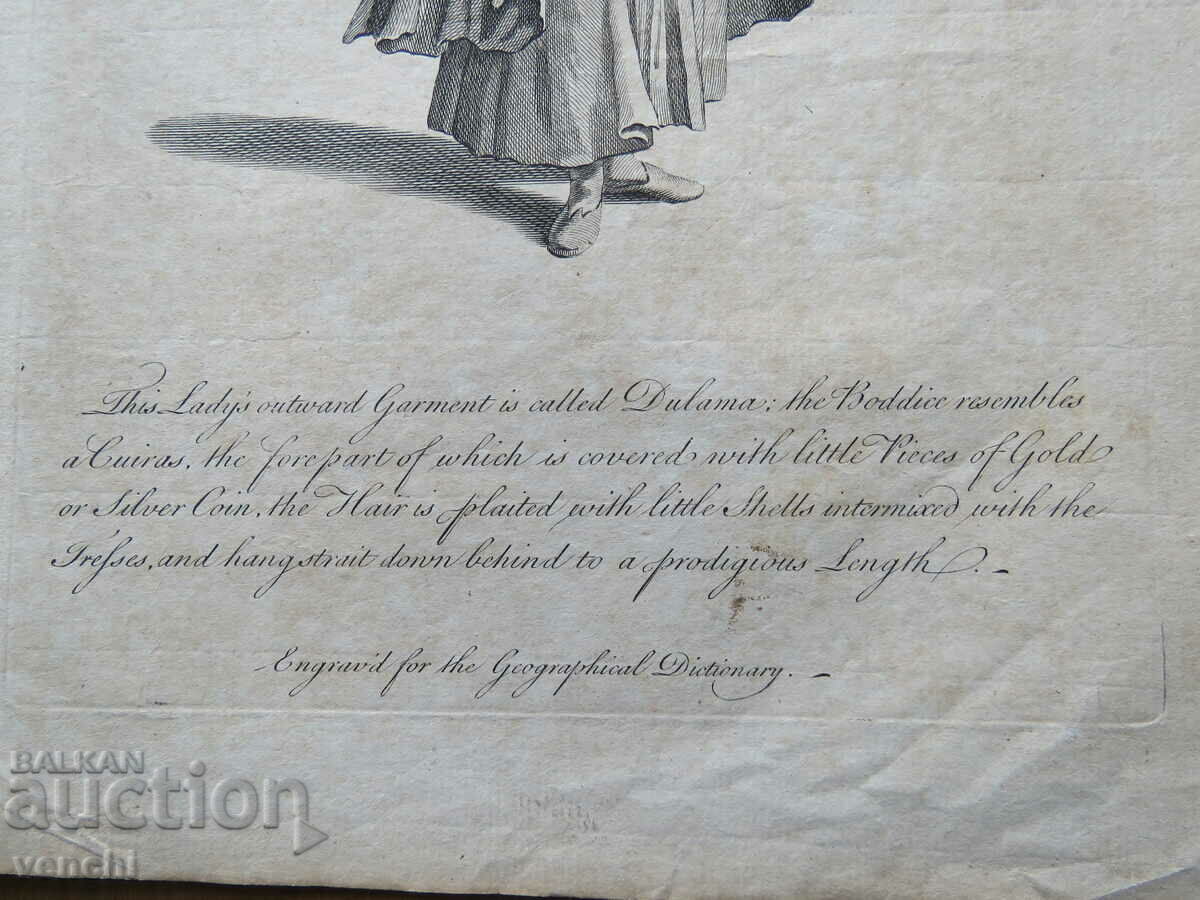 This Lady's outward Garment is called Dulama; the Boddice resembles
a Cuiras, the forepart of which is covered with little Pieces of Gold
or Silver Coin, the Hair is plaited with little Shells intermixed with the
Treſses, and hang strait down behind to a prodigious Length.
Engrav'd for the Geographical Dictionary.
BALKAN
auction
venchi